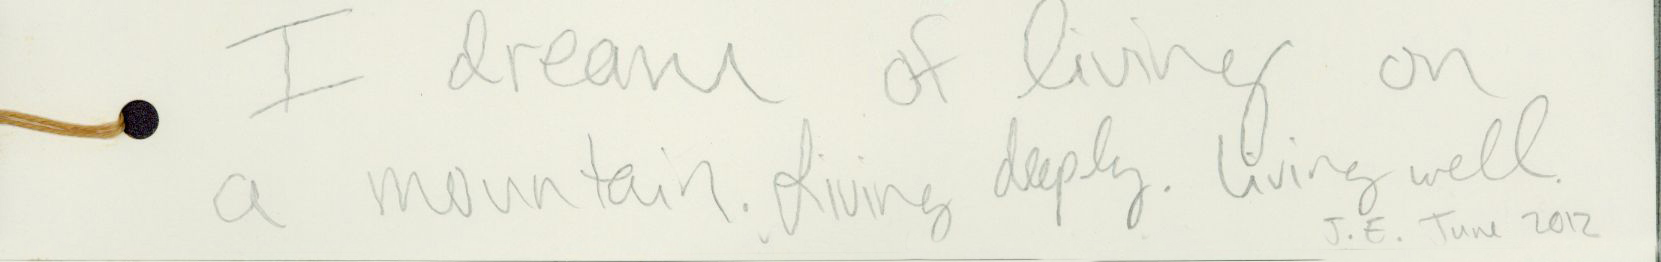 I dream of living on
a mountain. Living deeply. Living well.
J.E. June 2012